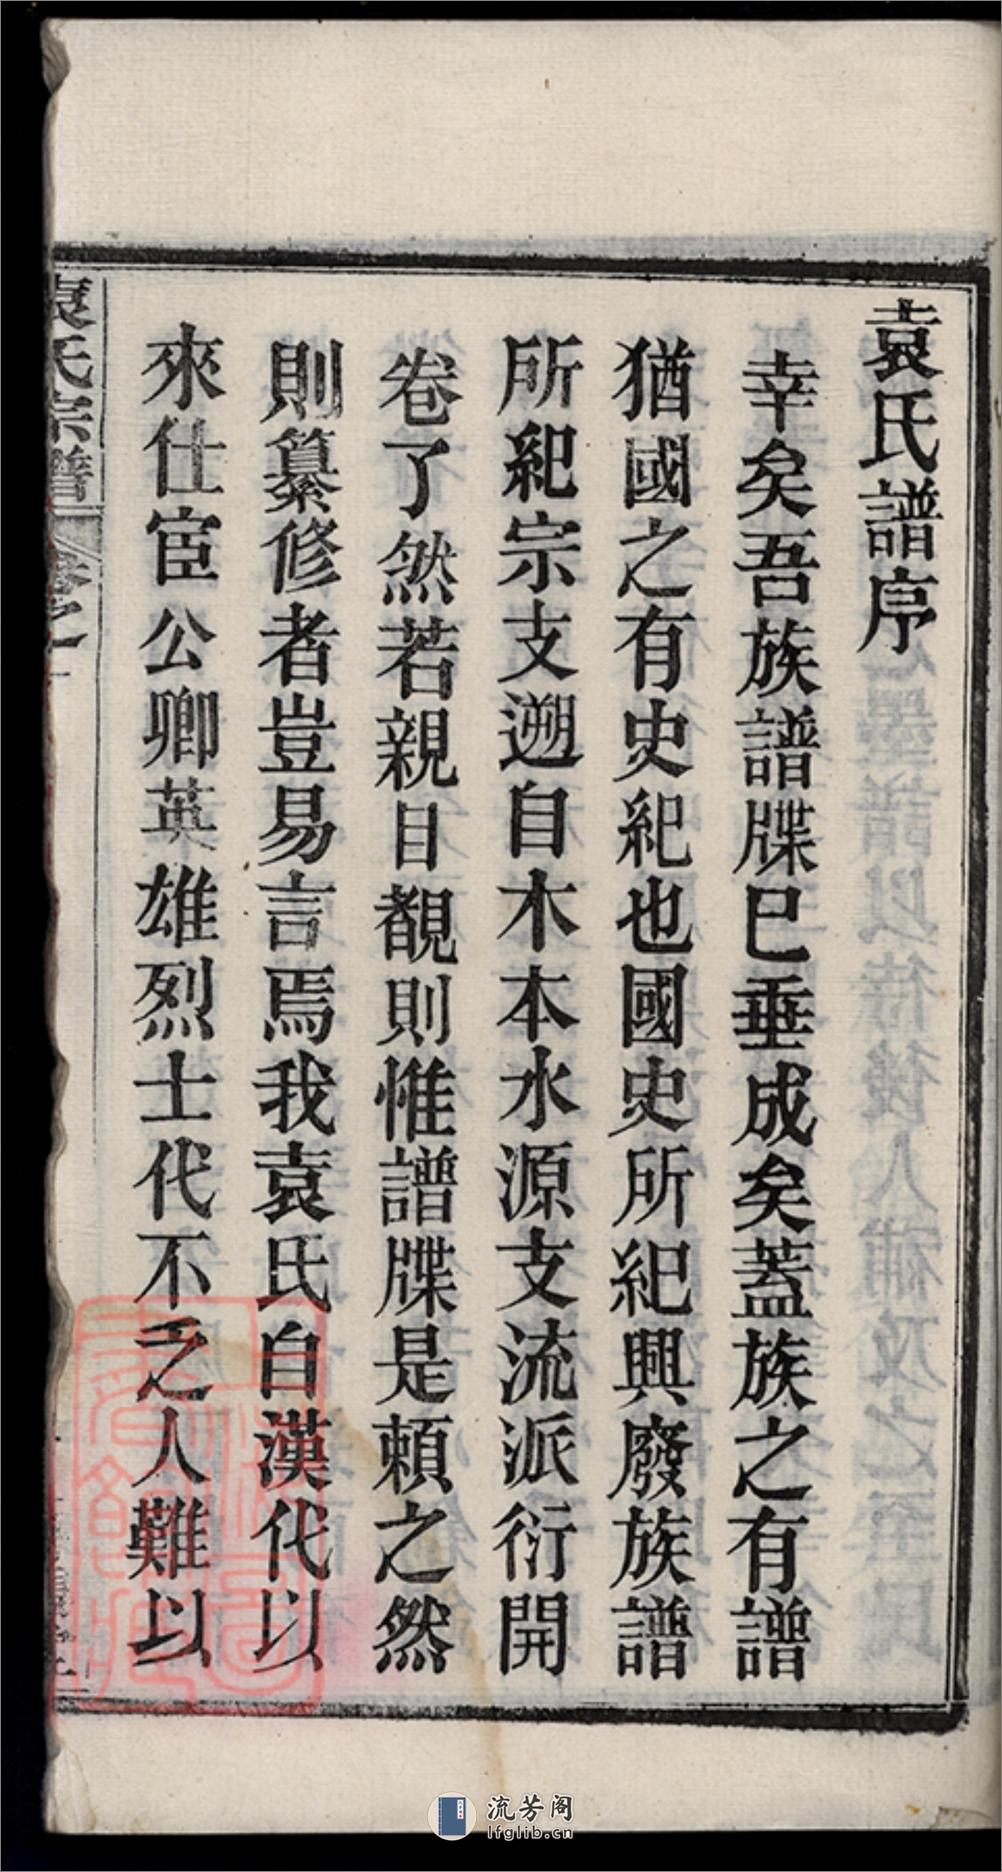 袁氏譜序
幸矣吾族譜牒已垂成矣蓋族之有譜
猶國之有史紀也國史所紀興廢族譜
所紀宗支遡自木本水源支流派衍開
卷了然若親目覩則惟譜牒是頼之然
則纂修者豈易言焉我袁氏自漢代以
來仕宦公卿英雄烈士代不乏人難以
袁氏宗譜
卷之一
流芳阁
lfglib.cn